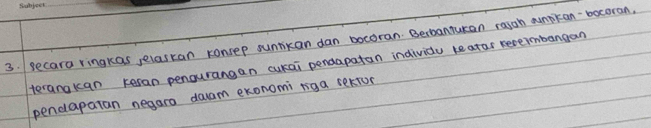 Subject
3. secara ringkas, jelaskan konsep suntikan dan bocoran. Berbantukan rajah suntikan-bocoran,
terangkan kesan pengurangan cukai pendapatan individu ke atas keseimbangan
pendapatan negara dalam ekonomi tiga sektor